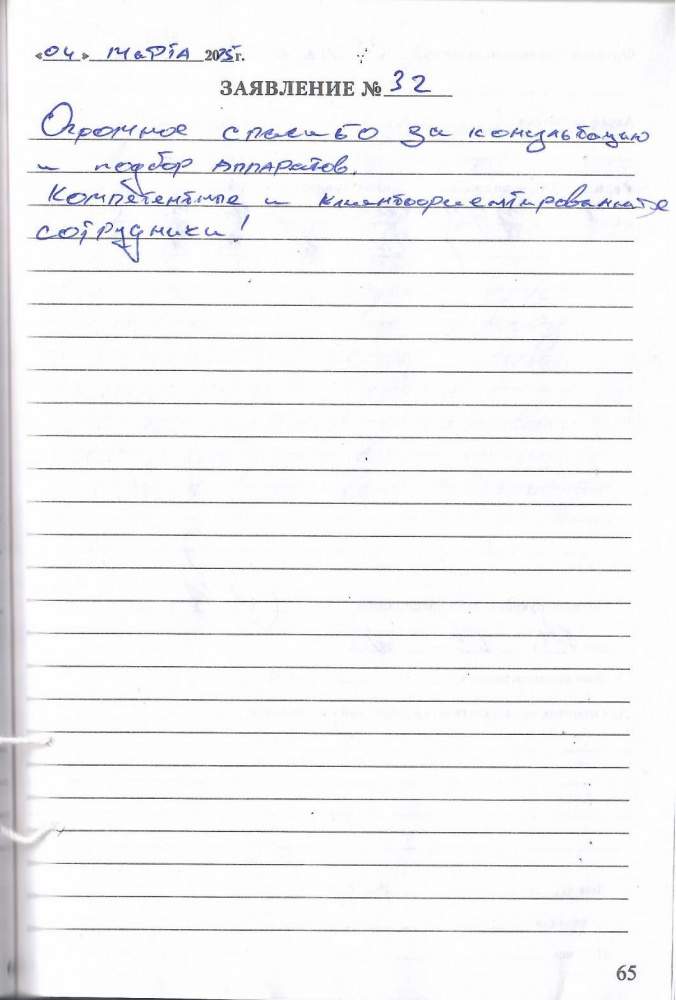 «04» марта 2025г.
ЗАЯВЛЕНИЕ № 32
Огромное спасибо за консультацию
и подбор аппаратов.
Компетентные и клиентоориентированные
сотрудники!
65